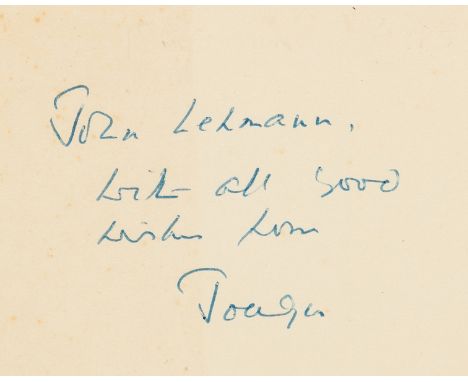 John Lehmann,
with all good
wishes from